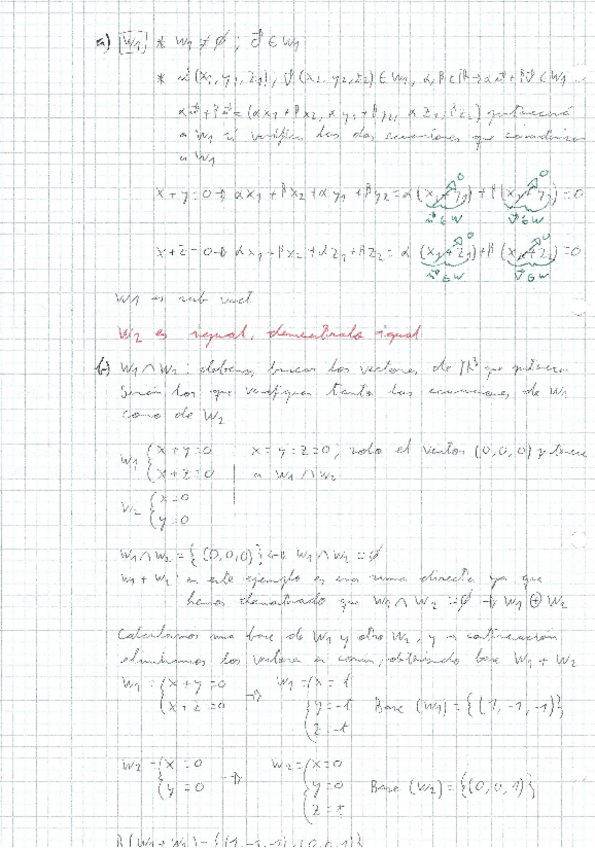 a) W1 * W1 ≠ ∅ ; 0⃗ ∈ W1
* u⃗(x1, y1, z1), v⃗(x2, y2, z2) ∈ W1, α, β ∈ ℝ → αu⃗ + βv⃗ ∈ W1
αu⃗ + βv⃗ = (αx1 + βx2, αy1 + βy2, αz1, βz2) pertenecerá
a W1 si verifica las dos ecuaciones que caracterizan
a W1
x+y=0 → αx1 + βx2 + αy1 + βy2 = α(x1+y1) + β(x2+y2) = 0
0 0
u⃗ ∈ W v⃗ ∈ W
x+z=0 → αx1 + βx2 + αz1 + βz2 = α(x1+z1) + β(x2+z2) = 0
0 0
u⃗ ∈ W v⃗ ∈ W
W1 es sub vect
W2 es igual, demuestralo igual.
b) W1 ∩ W2 : debemos buscar los vectores de ℝ³ que
Serán los que verifiquen tanto las ecuaciones de W1
como de W2
W1 { x+y=0 x=y=z=0; solo el vector (0,0,0) pertenece
x+z=0 a W1 ∩ W2
W2 { x=0
y=0
W1 ∩ W2 = {(0,0,0)} ↔ W1 ∩ W2 = ∅
W1 + W2 en este ejemplo es una suma directa ya que
hemos demostrado que W1 ∩ W2 = ∅ → W1 ⊕ W2
Calculamos una base de W1 y otra W2, y a continuación
eliminamos los vectores en común, obteniendo base W1 + W2
W1 = { x+y=0 → W1 = { x=t
x+z=0 y=-t Base (W1) = {(1,-1,-1)}
z=-t
W2 = { x=0 → W2 = { x=0
y=0 y=0 Base (W2) = {(0,0,1)}
z=z
B(W1+W2) = {(1,-1,-1), (0,0,1)}